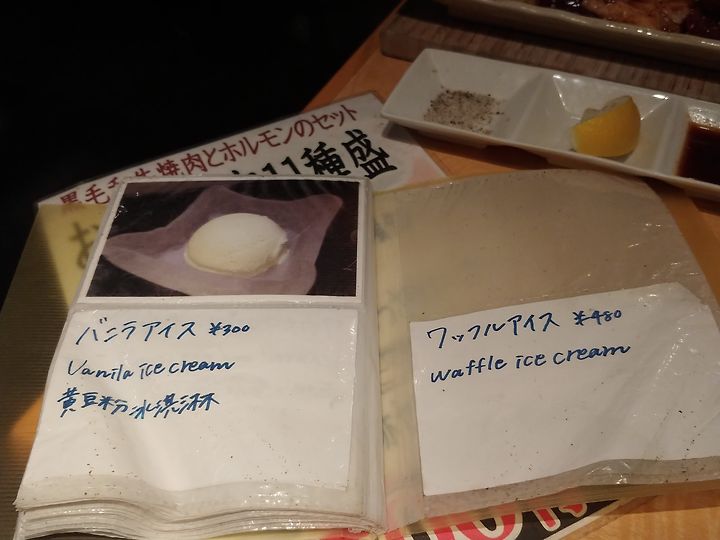 黒毛和牛焼肉とホルモンのセット
11種盛
バニラアイス ¥300
Vanila ice cream
黄豆粉冰淇淋
ワッフルアイス ¥480
waffle ice cream